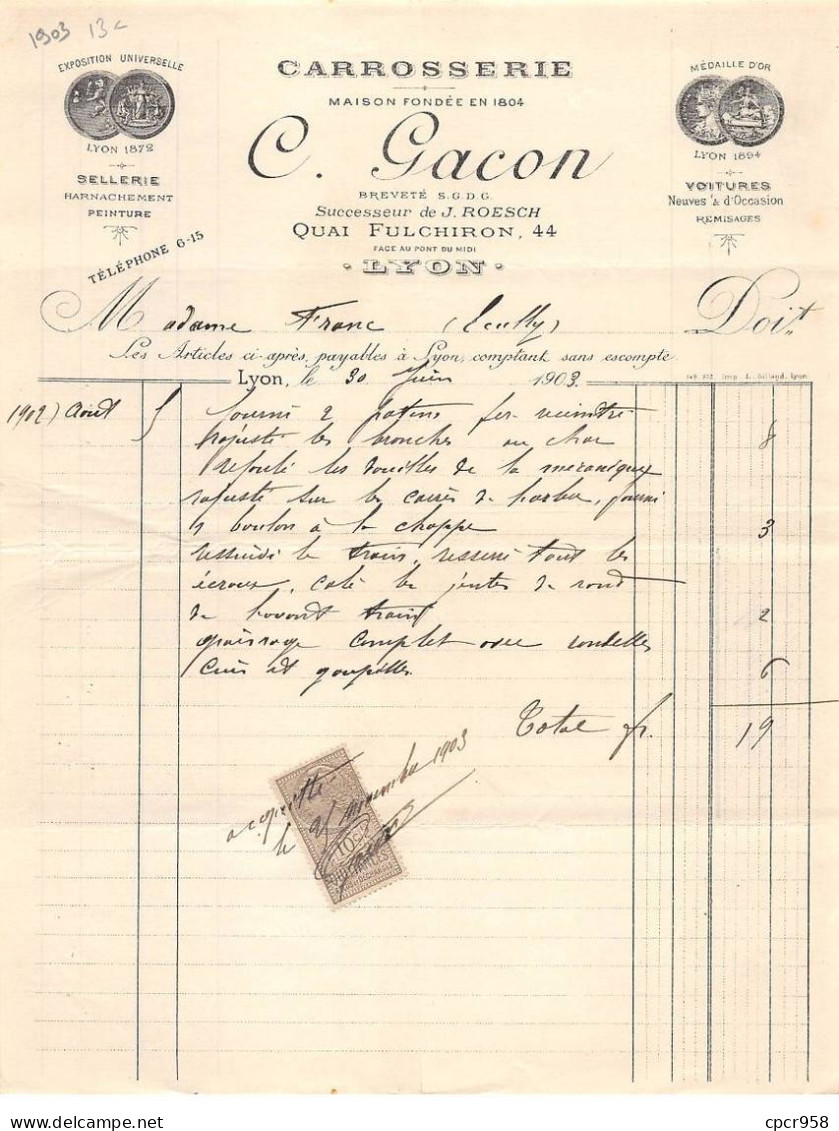 1903 13
EXPOSITION UNIVERSELLE
LYON 1872
SELLERIE
HARNACHEMENT
PEINTURE
TÉLÉPHONE 6-15
CARROSSERIE
MAISON FONDÉE EN 1804
C. Gacon
BREVETÉ S.G.D.G.
Successeur de J. ROESCH
QUAI FULCHIRON, 44
FACE AU PONT DU MIDI
LYON
MÉDAILLE D'OR
LYON 1894
VOITURES
Neuves & d'Occasion
REMISAGES
Madame Franc (Ecully) Doit
Les Articles ci-après, payables à Lyon, comptant sans escompte.
Imp. Lyon
Lyon, le 30 Juin 1903
1902) Août 5 fourni 2 patins fer
rajusté les broches au char 8
refoulé les douilles de la mécanique
rajusté sur les fourni
1 boulon à la chappe 3
le train, resserré tout les
écrous, calé les jentes de rond
de train 2
graissage complet avec rondelles
cuir et goupilles 6
Total fr. 19
acquitté
le novembre 1903
10c
QUITTANCES